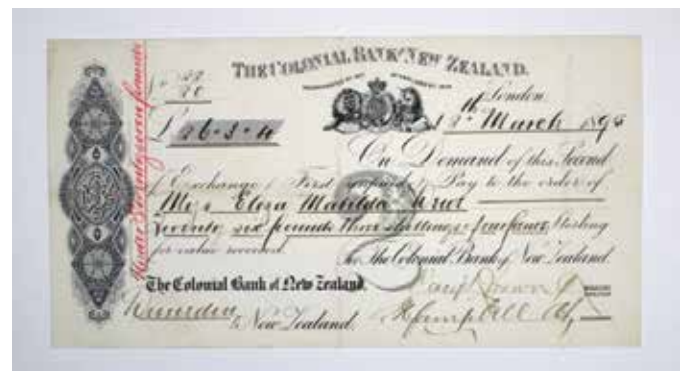 THE COLONIAL BANK OF NEW ZEALAND.
London
£ 26-3-4
12th March 1895
On Demand of this Second
of Exchange (First unpaid) Pay to the order of
Mrs Eliza Matilda
Twenty six pounds three shillings & fourpence Sterling
for value received. For The Colonial Bank of New Zealand.
The Colonial Bank of New Zealand.
Dunedin
New Zealand.
Campbell
Under Twenty seven pounds